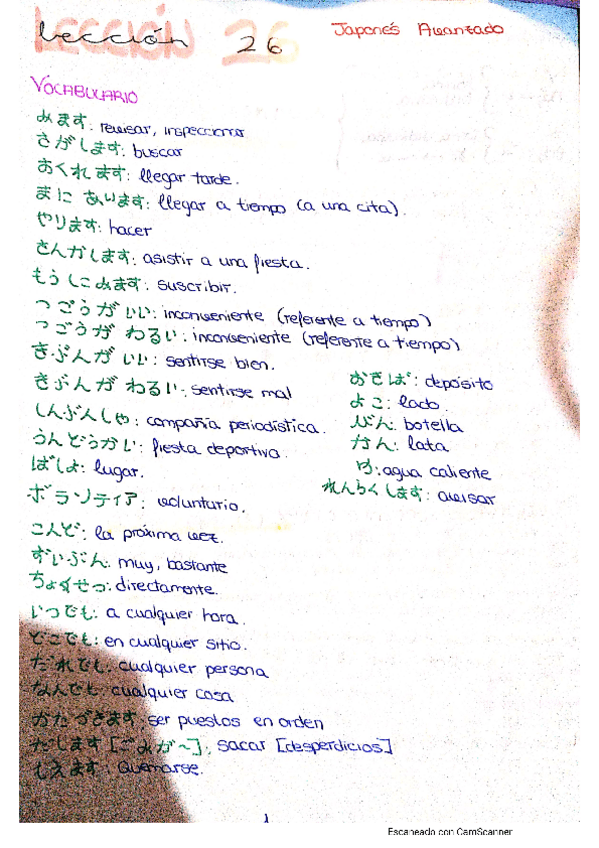 Lección 26
Japonés Avanzado
VOCABULARIO
みます: revisar, inspeccionar
さがします: buscar
おくれます: llegar tarde.
まに あります: llegar a tiempo (a una cita).
やります: hacer
さんかします: asistir a una fiesta.
もうしこみます: suscribir.
つごうが いい: inconveniente (referente a tiempo)
つごうが わるい: inconveniente (referente a tiempo)
きぶんが いい: sentirse bien.
きぶんが わるい: sentirse mal
しんぶんしゃ: compañia periodística.
うんどうかい: fiesta deportiva.
ばしょ: lugar.
ボランティア: voluntario.
こんど: la próxima vez.
ずいぶん: muy, bastante
ちょくせつ: directamente.
いつでも: a cualquier hora.
どこでも: en cualquier sitio.
だれでも: cualquier persona
なんでも: cualquier cosa
かたづきます: ser puestos en orden
だします [ごみが~]: sacar [desperdicios]
もえます: quemarse.
おきば: depósito
よこ: lado.
びん: botella
かん: lata
ゆ: agua caliente
れんらくします: avisar
1
Escaneado con CamScanner